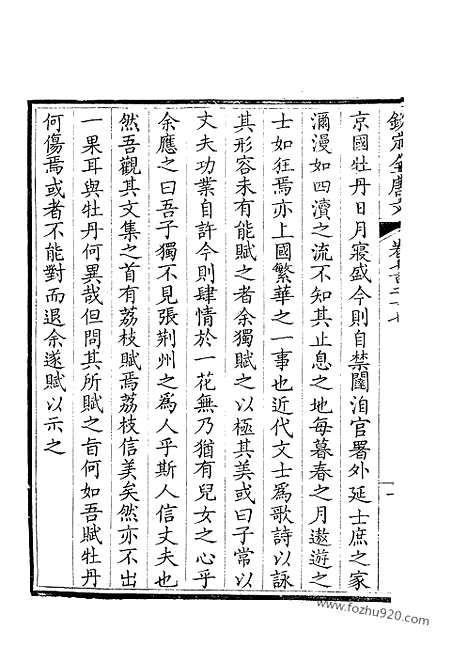 欽定全唐文　卷七百二十七　一
京國牡丹日月寖盛今則自禁闥洎官署外延士庶之家
瀰漫如四瀆之流不知其止息之地每暮春之月遨遊之
士如狂焉亦上國繁華之一事也近代文士爲歌詩以詠
其形容未有能賦之者余獨賦之以極其美或曰子常以
丈夫功業自許今則肆情於一花無乃猶有兒女之心乎
余應之曰吾子獨不見張荆州之爲人乎斯人信丈夫也
然吾觀其文集之首有荔枝賦焉荔枝信美矣然亦不出
一果耳與牡丹何異哉但問其所賦之旨何如吾賦牡丹
何傷焉或者不能對而退余遂賦以示之
www.fozhu920.com